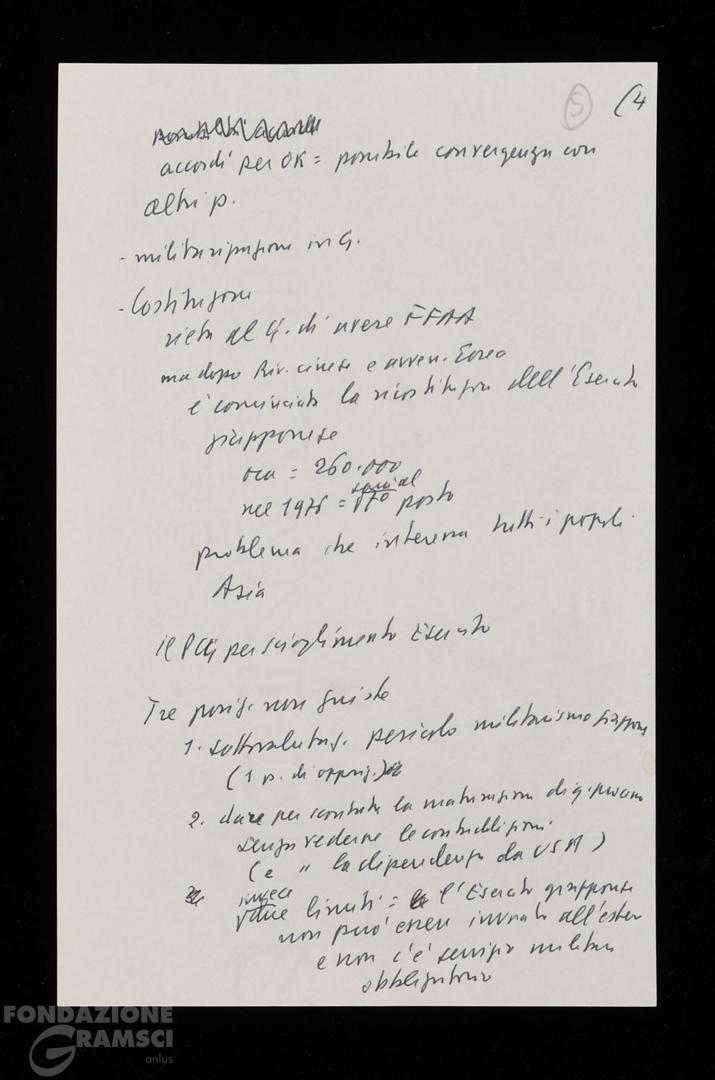 5 (4
accordi per OK = possibile convergenza con
altri p.
- militarizzazione in G.
- Costituzione
vieta al G. di avere FFAA
ma dopo Riv. cinese e avven. Corea
è cominciata la ricostituzion dell'Esercito
giapponese
ora = 260.000
nel 1976 = 7º posto
problema che interessa tutti i popoli
Asia
il PCG per scioglimento Esercito
Tre posiz. non giuste
1. sottovalutaz. pericolo militarismo giappone
(1 p. di opposiz.)
2. dare per scontata la
senza vederne le contraddizioni
(e " la dipendenza da USA)
invece
due limiti = l'Esercito giapponese
non può essere inviato all'estero
e non c'è servizio militare
obbligatorio
FONDAZIONE
GRAMSCI
onlus